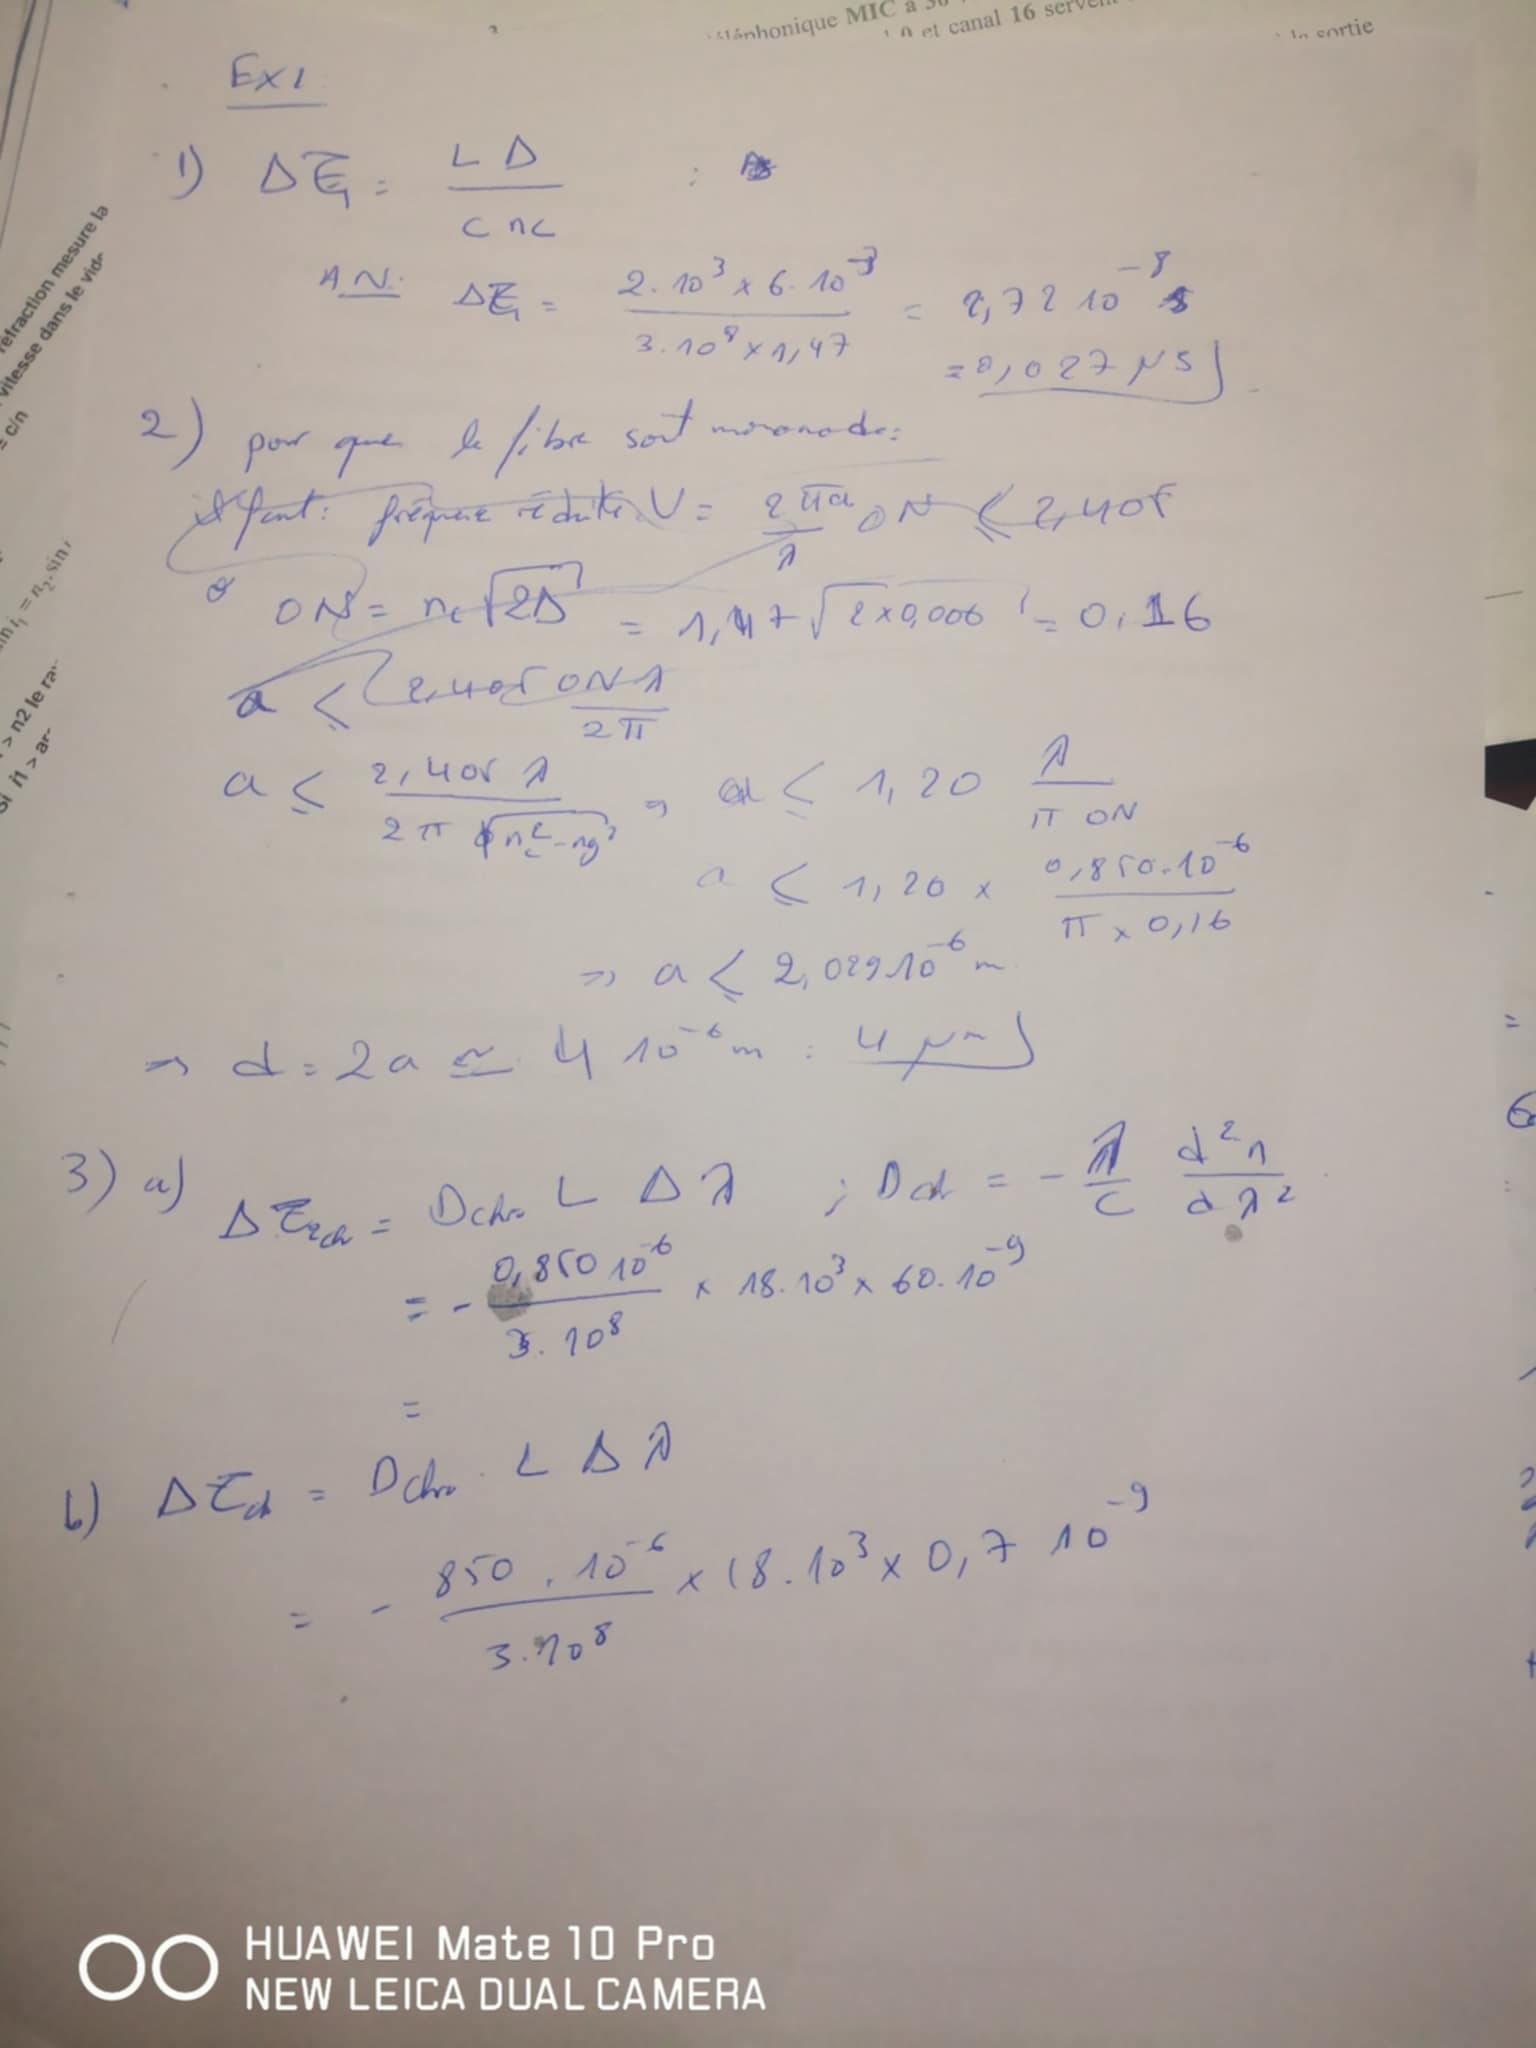 éléphonique MIC à 30
0 et canal 16 servent
la sortie
réfraction mesure la
vitesse dans le vide
= c/n
i₁ = n₂.sin i
> n2 le ra
si i1 > ar
Ex1
1) Δτ₁ = LΔ / c nc :
A.N. Δτ₁ = 2.10³ x 6.10⁻³ / 3.10⁸ x 1,47 = 2,72 10⁻⁸ s
= 0,027 µs
2) pour que la fibre soit monomode:
il faut: fréquence réduite V = 2πa/λ ON ⩽ 2,405
ON = nc √2Δ = 1,47 √2x0,006 = 0,16
a ⩽ 2,405 ON λ / 2π
a ⩽ 2,405 λ / 2π √nc²-ng² ⇒ a ⩽ 1,20 λ / π ON
a ⩽ 1,20 x 0,850.10⁻⁶ / π x 0,16
⇒ a ⩽ 2,029 10⁻⁶ m
⇒ d = 2a ≃ 4 10⁻⁶ m : 4 µm
3) a) Δτch = Dchr L Δλ ; Dch = - λ/c d²n/dλ²
= - 0,850 10⁻⁶ / 3.10⁸ x 18.10³ x 60.10⁻⁹
=
b) Δτch = Dchr . L Δλ
= - 850 . 10⁻⁶ / 3.10⁸ x 18.10³ x 0,7 10⁻⁹
HUAWEI Mate 10 Pro
NEW LEICA DUAL CAMERA